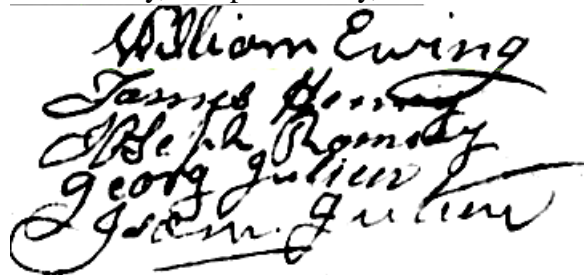 William Ewing
James Henry
Joseph Ramsey
Georg Julien
Isam Julien